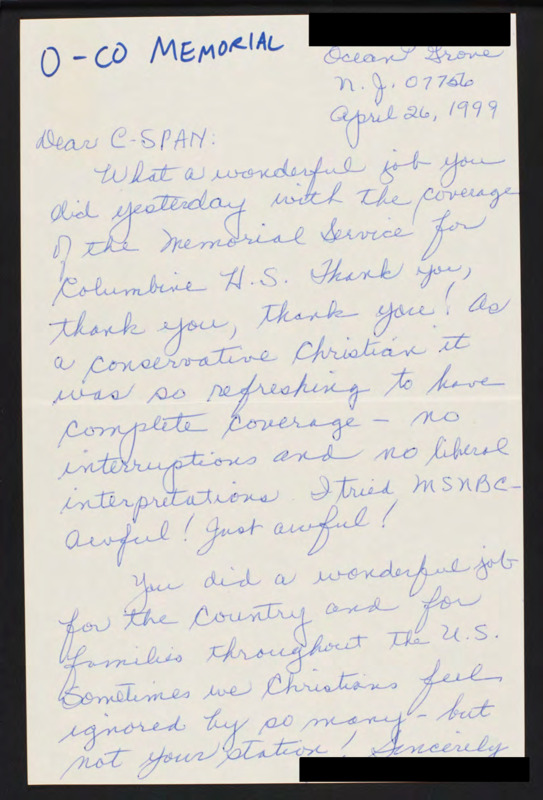 O-CO MEMORIAL
Ocean Grove
N.J. 07756
April 26, 1999
Dear C-SPAN:
What a wonderful job you
did yesterday with the coverage
of the Memorial Service for
Columbine H.S. Thank you,
thank you, thank you! As
a conservative Christian it
was so refreshing to have
complete coverage - no
interruptions and no liberal
interpretations. I tried MSNBC-
awful! Just awful!
You did a wonderful job
for the Country and for
families throughout the U.S.
Sometimes we Christians feel
ignored by so many - but
not your station! Sincerely